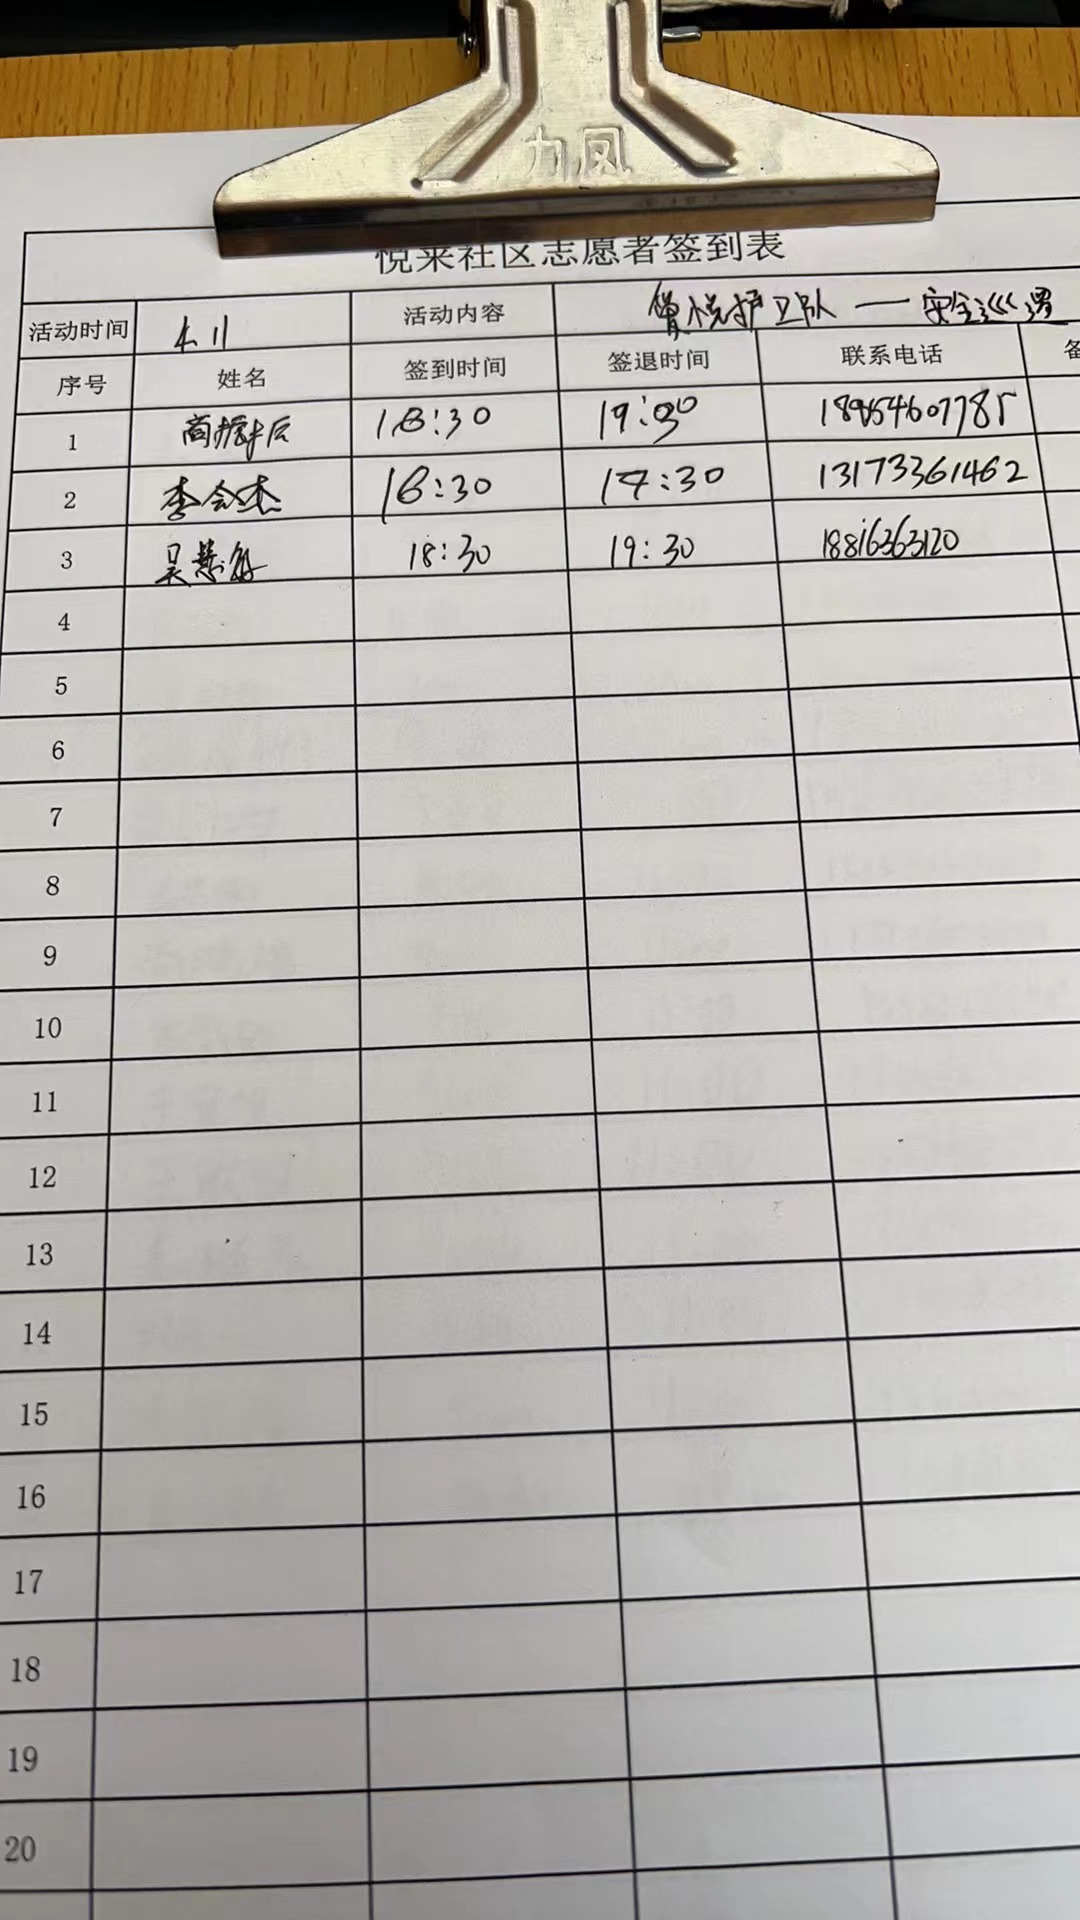 力凤
悦来社区志愿者签到表
活动时间 4.11 活动内容 悦护卫队——安全巡逻
序号 姓名 签到时间 签退时间 联系电话 备
1 18:30 19:30 18954607785
2 李会杰 16:30 17:30 13173361462
3 吴慧海 18:30 19:30 18816363120
4
5
6
7
8
9
10
11
12
13
14
15
16
17
18
19
20